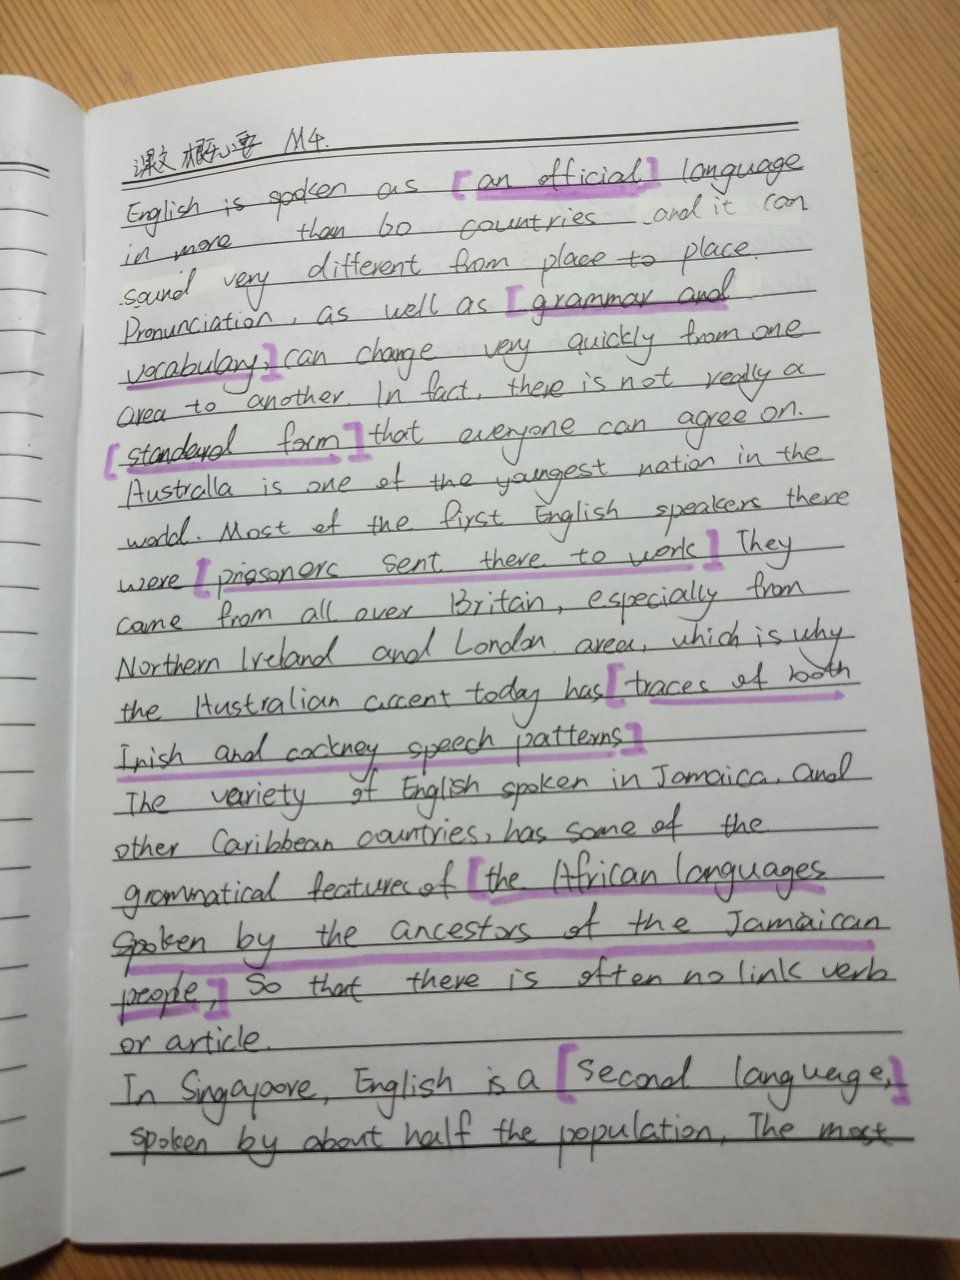 课文概要 M4.
English is spoken as [an official] language
in more than 60 countries and it can
sound very different from place to place.
Pronunciation, as well as [grammar and
vocabulary,] can change very quickly from one
area to another. In fact, there is not really a
[standard form] that everyone can agree on.
Australia is one of the youngest nation in the
world. Most of the first English speakers there
were [prisoners sent there to work] They
came from all over Britain, especially from
Northern Ireland and London area, which is why
the Australian accent today has [traces of both
Irish and cockney speech patterns]
The variety of English spoken in Jamaica, and
other Caribbean countries, has some of the
grammatical features of [the African languages
spoken by the ancestors of the Jamaican
people,] So that there is often no link verb
or article.
In Singapore, English is a [second language,]
spoken by about half the population, The most